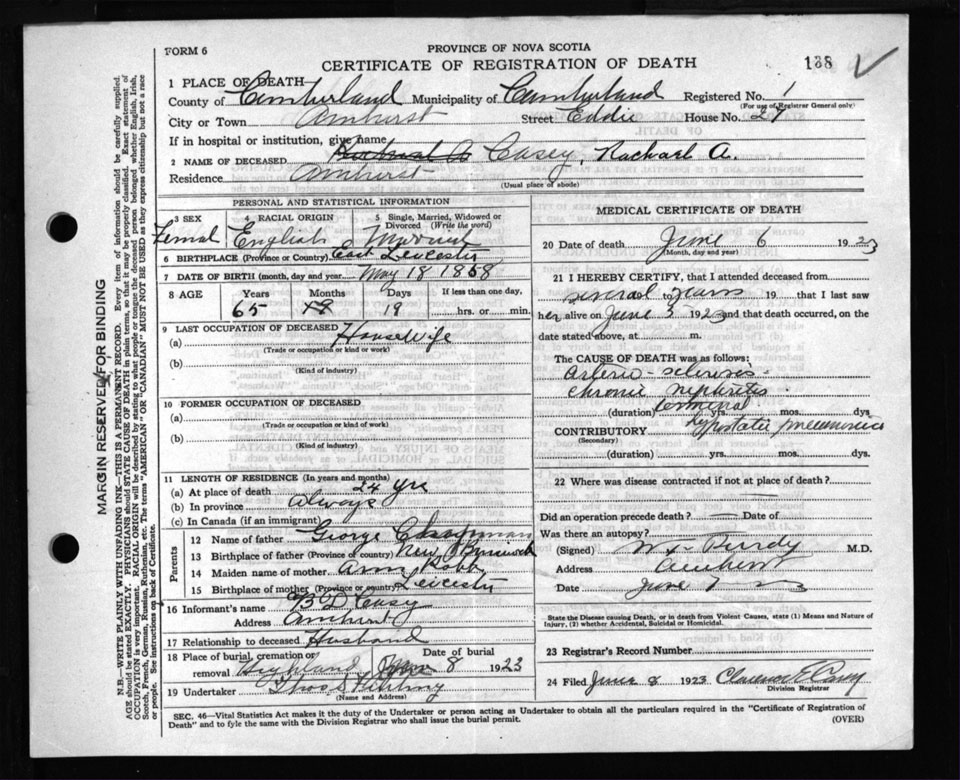 FORM 6
PROVINCE OF NOVA SCOTIA
CERTIFICATE OF REGISTRATION OF DEATH
138
1 PLACE OF DEATH
County of Cumberland Municipality of Cumberland Registered No. 1
(For use of Registrar General only)
City or Town Amherst Street Eddie House No. 27
If in hospital or institution, give name
2 NAME OF DECEASED Rachael A Casey, Rachael A.
Residence Amherst
(Usual place of abode)
PERSONAL AND STATISTICAL INFORMATION
3 SEX 4 RACIAL ORIGIN 5 Single, Married, Widowed or Divorced (Write the word)
Femal English Married
6 BIRTHPLACE (Province or Country) East Leicester
7 DATE OF BIRTH (month, day and year) May 18 1858
8 AGE Years Months Days If less than one day,
65 18 19 ....... hrs. or ....... min.
9 LAST OCCUPATION OF DECEASED
(a) Housewife
(Trade or occupation or kind or work)
(b)
(Kind of industry)
10 FORMER OCCUPATION OF DECEASED
(a)
(Trade or occupation or kind of work)
(b)
(Kind of industry)
11 LENGTH OF RESIDENCE (In years and months)
(a) At place of death 24 yrs
(b) In province always
(c) In Canada (if an immigrant)
Parents
12 Name of father George Chapman
13 Birthplace of father (Province or country) New Brunswick
14 Maiden name of mother Ann Robb
15 Birthplace of mother (Province or country) Leicester
16 Informant's name B D Casey
Address Amherst
17 Relationship to deceased Husband
18 Place of burial, cremation or removal Highland Date of burial June 8 1923
19 Undertaker
(Name and Address)
MEDICAL CERTIFICATE OF DEATH
20 Date of death June 6 1923
(Month, day and year)
21 I HEREBY CERTIFY, that I attended deceased from
several to years 19 that I last saw
her alive on June 3 1923 and that death occurred, on the
date stated above, at m.
The CAUSE OF DEATH was as follows:
Arterio-sclerosis -
Chronic nephritis .
(duration) yrs. mos. dys.
CONTRIBUTORY terminal hypostatic pneumonia
(Secondary)
(duration) yrs. mos. dys.
22 Where was disease contracted if not at place of death?
Did an operation precede death? — Date of
Was there an autopsy? —
(Signed) Purdy M.D.
Address Amherst
Date June 7 23
State the Disease causing Death, or in death from Violent Causes, state (1) Means and Nature of
Injury, (2) whether Accidental, Suicidal or Homicidal.
23 Registrar's Record Number
24 Filed June 8 1923 Clarence E Casey
Division Registrar
SEC. 46—Vital Statistics Act makes it the duty of the Undertaker or person acting as Undertaker to obtain all the particulars required in the "Certificate of Registration of
Death" and to fyle the same with the Division Registrar who shall issue the burial permit.
(OVER)
MARGIN RESERVED FOR BINDING
N.B.—WRITE PLAINLY WITH UNFADING INK—THIS IS A PERMANENT RECORD. Every item of information should be carefully supplied.
AGE should be stated EXACTLY. PHYSICIANS should STATE CAUSE OF DEATH in plain terms, so that it may be properly classified. Exact statement of
OCCUPATION is very important. RACIAL ORIGIN will be described by stating to what people or tongue the deceased person belonged whether English, Irish,
Scotch, French, German, Russian, Ruthenian, etc. The terms "AMERICAN" or "CANADIAN" MUST NOT BE USED as they express citizenship but not a race
or people. See instructions on back of Certificate.